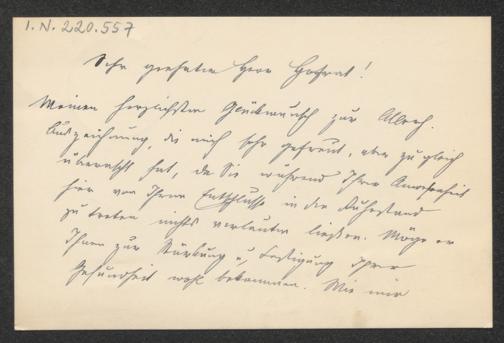 I.N. 220.557
Sehr geehrter Herr Hofrat!
Meinen herzlichsten Glückwunsch zur Allerh.
Auszeichnung, die mich sehr gefreut, aber zugleich
überrascht hat, da Sie während Ihrer Anwesenheit
hier von Ihrem Entschlusse in den Ruhestand
zu treten nichts verlauten ließen. Möge er
Ihnen zur Stärkung u. Festigung Ihrer
Gesundheit wohl bekommen. Wie mir